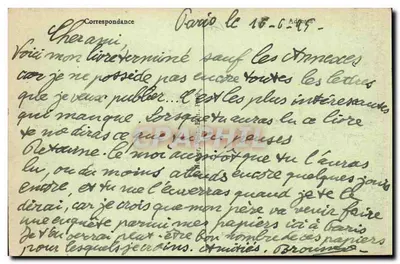 Correspondance
Paris le 18-6-25.
Cher ami,
Voici mon livre terminé sauf les Annexes
car je ne possède pas encore toutes les lettres
que je veux publier... C'est les plus intéressantes
qui manque. Lorsque tu auras lu ce livre
te me diras ce que tu en penses
Retourne-le moi aussitôt que tu l'auras
lu, ou du moins attends encore quelques jours
encore, et tu me l'enverras quand je te le
dirai, car je crois que mon père va venir faire
une enquête parmi mes papiers ici à Paris
Je t'en verrai peut-être bon nombre de ces papiers
pour lesquels je crains. Amitiés.